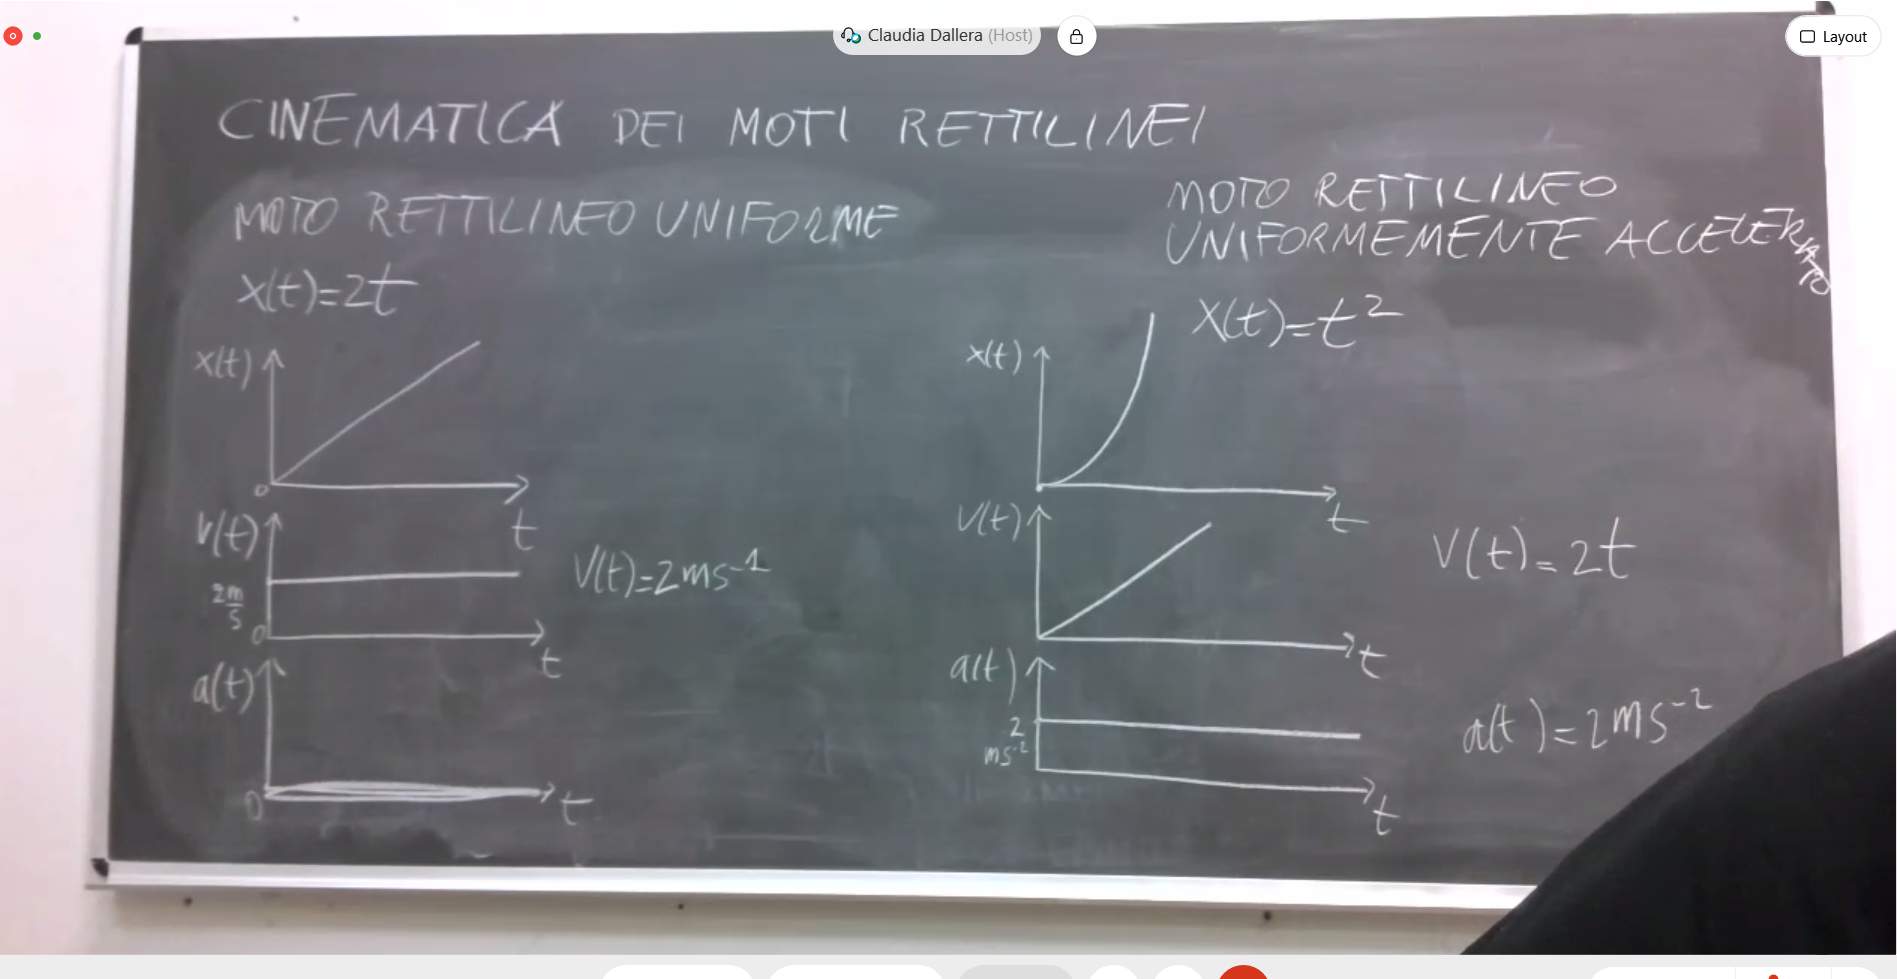 Claudia Dallera (Host)
Layout
CINEMATICA DEI MOTI RETTILINEI
MOTO RETTILINEO UNIFORME
x(t)=2t
x(t)
0
t
V(t)
2m/s
0
t
V(t)=2ms⁻¹
a(t)
0
t
MOTO RETTILINEO
UNIFORMEMENTE ACCELERATO
x(t)=t²
x(t)
t
V(t)
t
V(t)=2t
a(t)
2
ms⁻²
t
a(t)=2ms⁻²